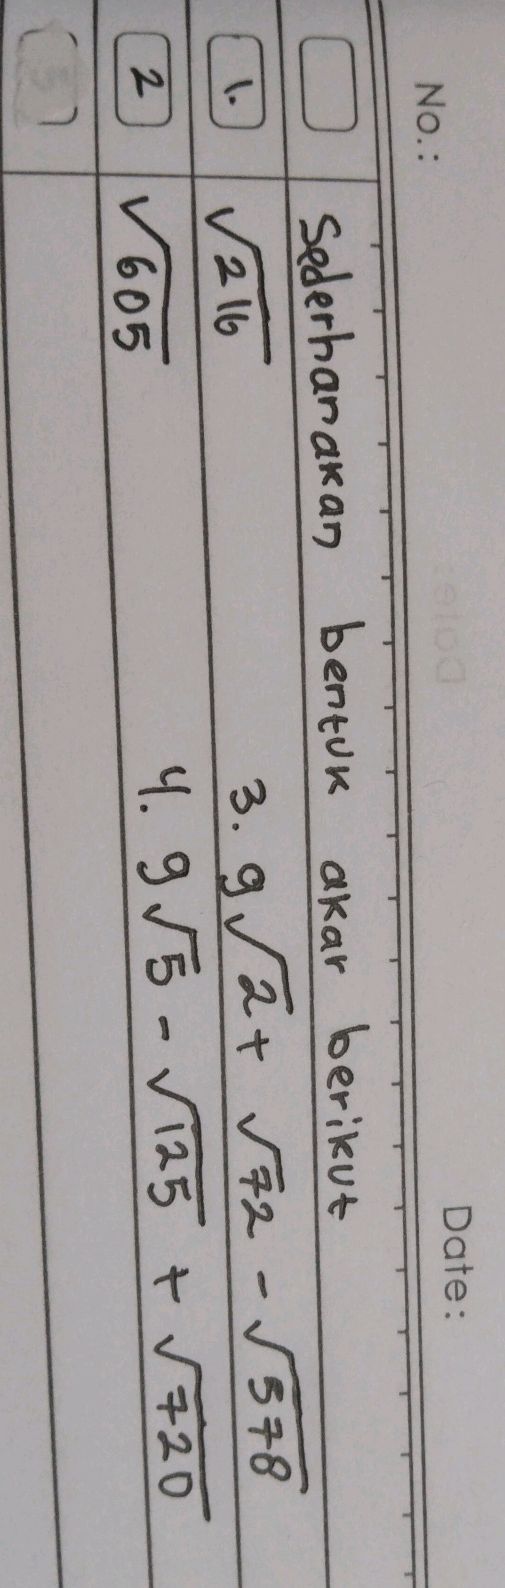 No.: Date:
Sederhanakan bentuk akar berikut
1. √216 3. 9√2 + √72 - √578
2 √605 4. 9√5 - √125 + √720